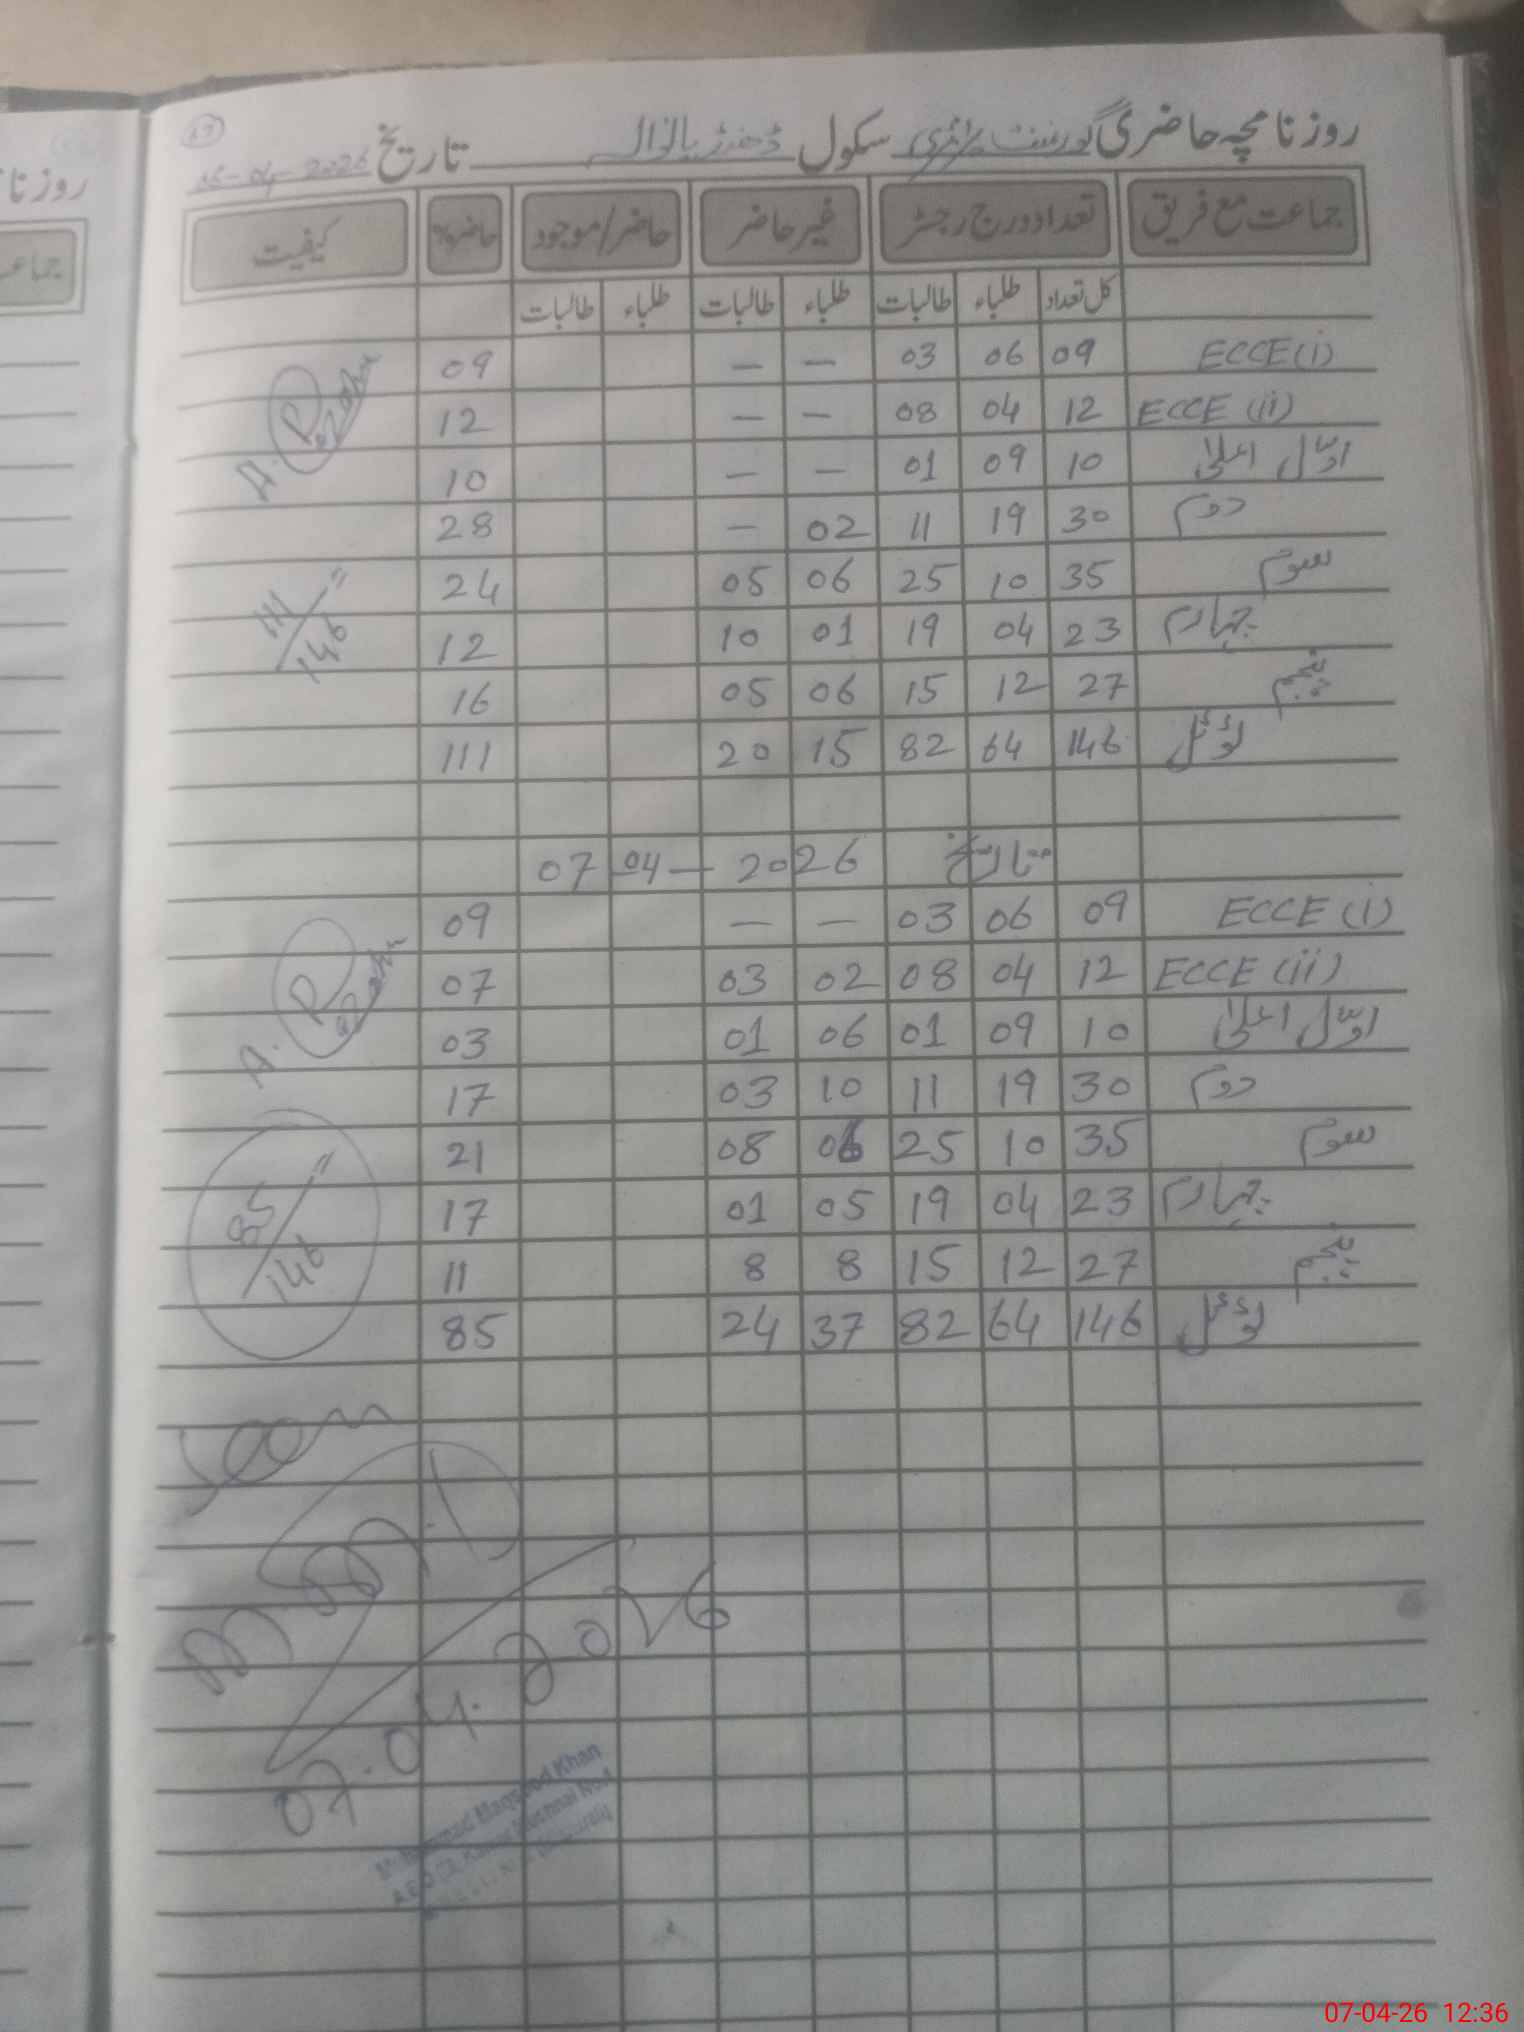 روزنامچہ حاضری گورنمنٹ پرائمری سکول ڈھنڈیانوالہ تاریخ 2026-04-
جماعت مع فریق تعداد درج رجسٹر غیر حاضر حاضر/موجود حاضر% کیفیت
کل تعداد طلباء طالبات طلباء طالبات طلباء طالبات
ECCE(i) 09 06 03 — — 09
ECCE (ii) 12 04 08 — — 12
اول اعلیٰ 10 09 01 — — 10
دوم 30 19 11 02 — 28
سوم 35 10 25 06 05 24
چہارم 23 04 19 01 10 12
پنجم 27 12 15 06 05 16
ٹوٹل 146 64 82 15 20 111
111/146
تاریخ 07-04-2026
ECCE (i) 09 06 03 — — 09
ECCE (ii) 12 04 08 02 03 07
اول اعلیٰ 10 09 01 06 01 03
دوم 30 19 11 10 03 17
سوم 35 10 25 06 08 21
چہارم 23 04 19 05 01 17
پنجم 27 12 15 8 8 11
ٹوٹل 146 64 82 37 24 85
85/146
Seen
07.04.2026
Muhammad Maqsood Khan
07-04-26 12:36
روزنا
جماعت